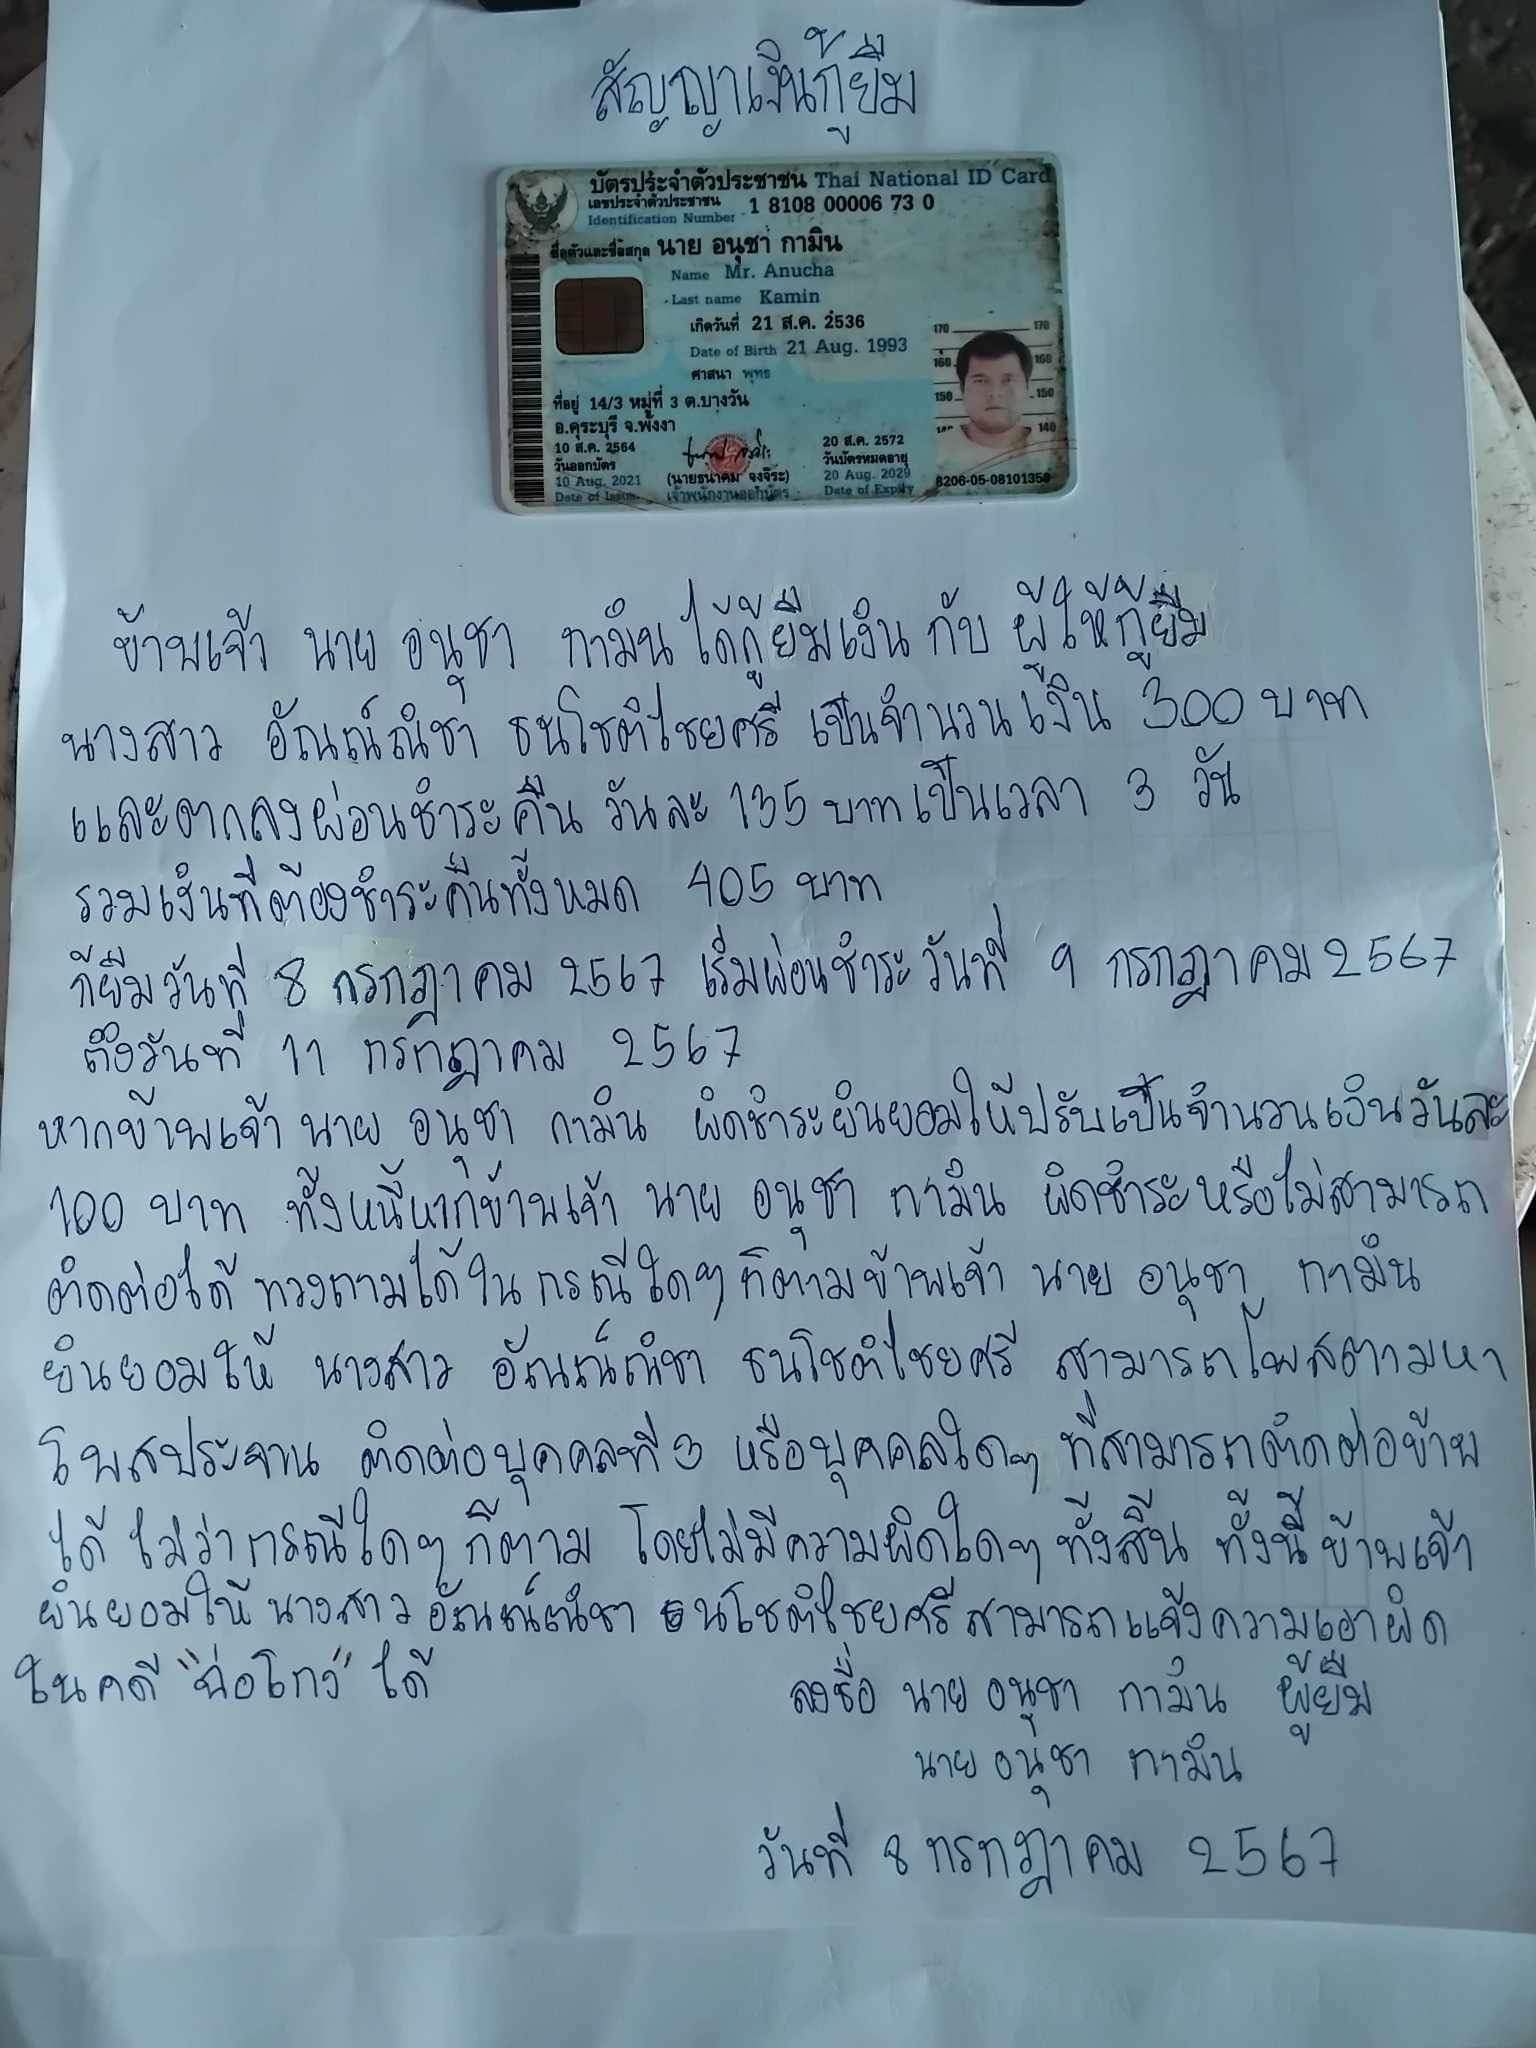 สัญญาเงินกู้ยืม
บัตรประจำตัวประชาชน Thai National ID Card
เลขประจำตัวประชาชน 1 8108 00006 73 0
Identification Number
ชื่อตัวและชื่อสกุล นาย อนุชา กามิน
Name Mr. Anucha
Last name Kamin
เกิดวันที่ 21 ส.ค. 2536
Date of Birth 21 Aug. 1993
ศาสนา พุทธ
ที่อยู่ 14/3 หมู่ที่ 3 ต.บางวัน
อ.คุระบุรี จ.พังงา
10 ส.ค. 2564
วันออกบัตร
10 Aug. 2021
Date of Issue
(นายธนาคม จงจิระ)
เจ้าพนักงานออกบัตร
20 ส.ค. 2572
วันบัตรหมดอายุ
20 Aug. 2029
Date of Expiry
170 170
160 160
150 150
140 140
8206-05-08101359
ข้าพเจ้า นาย อนุชา กามิน ได้กู้ยืมเงิน กับ ผู้ให้กู้ยืม
นางสาว อัณณ์ณิชา ธนโชติไชยศรี เป็นจำนวน เงิน 300 บาท
และตกลงผ่อนชำระคืน วันละ 135 บาท เป็นเวลา 3 วัน
รวมเงินที่ต้องชำระคืนทั้งหมด 405 บาท
กู้ยืมวันที่ 8 กรกฎาคม 2567 เริ่มผ่อนชำระ วันที่ 9 กรกฎาคม 2567
ถึงวันที่ 11 กรกฎาคม 2567
หากข้าพเจ้า นาย อนุชา กามิน ผิดชำระยินยอมให้ปรับเป็นจำนวนเงินวันละ
100 บาท ทั้งหนี้หากข้าพเจ้า นาย อนุชา กามิน ผิดชำระหรือไม่สามารถ
ติดต่อได้ ทวงถามได้ ใน กรณีใดๆ ก็ตามข้าพเจ้า นาย อนุชา กามิน
ยินยอมให้ นางสาว อัณณ์ณิชา ธนโชติไชยศรี สามารถโพสตามหา
โพสประจาน ติดต่อบุคคลที่ 3 หรือบุคคลใดๆ ที่สามารถติดต่อข้าพ
ได้ ไม่ว่ากรณีใดๆ ก็ตาม โดยไม่มีความผิดใดๆ ทั้งสิ้น ทั้งนี้ ข้าพเจ้า
ยินยอมให้ นางสาว อัณณ์ณิชา ธนโชติไชยศรี สามารถแจ้งความเอาผิด
ในคดี "ฉ่อโกง" ได้
ลงชื่อ นาย อนุชา กามิน ผู้ยืม
นาย อนุชา กามิน
วันที่ 8 กรกฎาคม 2567